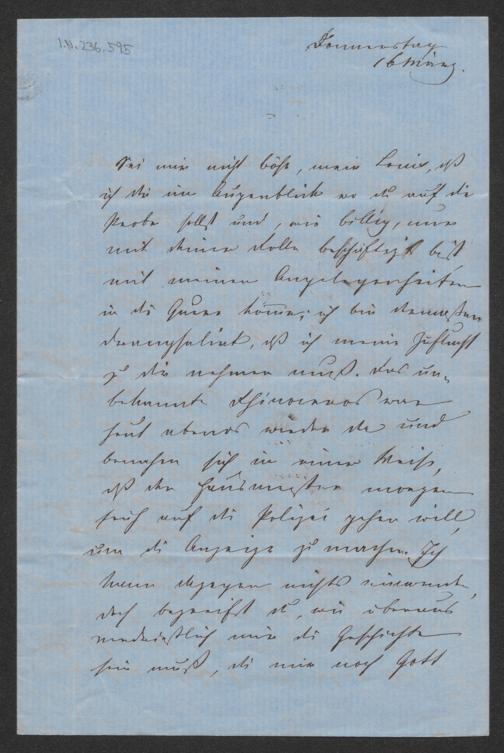 I.N. 236.595
Donnerstag
16 März.
Sei mir nicht böse, mein Louis, daß
ich dir im Augenblick wo du auf die
Probe sollst und, wie billig, nur
mit deiner Rolle beschäftigt bist
mit meinen Angelegenheiten
in die Quere komme; ich bin dermaßen
drangsalirt, daß ich meine Zuflucht
zu dir nehmen muß. Das un-
bekannte Rhinoceros war
heut abends wieder da und
benahm sich in einer Weise,
daß der Hausmeister morgen
früh auf die Polizei gehen will,
um die Anzeige zu machen. Ich
kann dagegen nichts einwenden,
doch begreifst du, wie überaus
widerlich mir die Geschichte
sein muß, die mir noch Gott